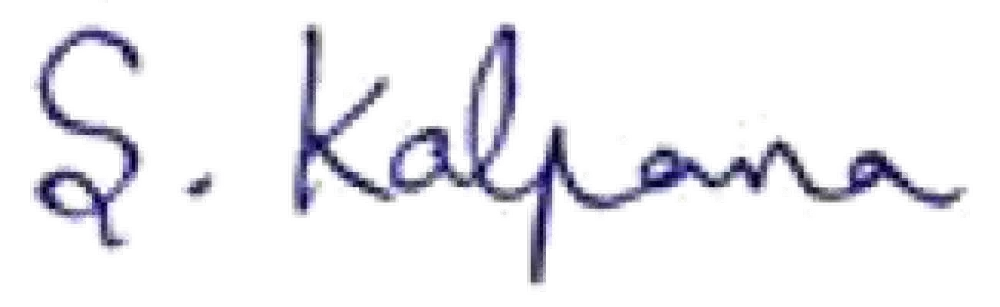 S. Kalpana